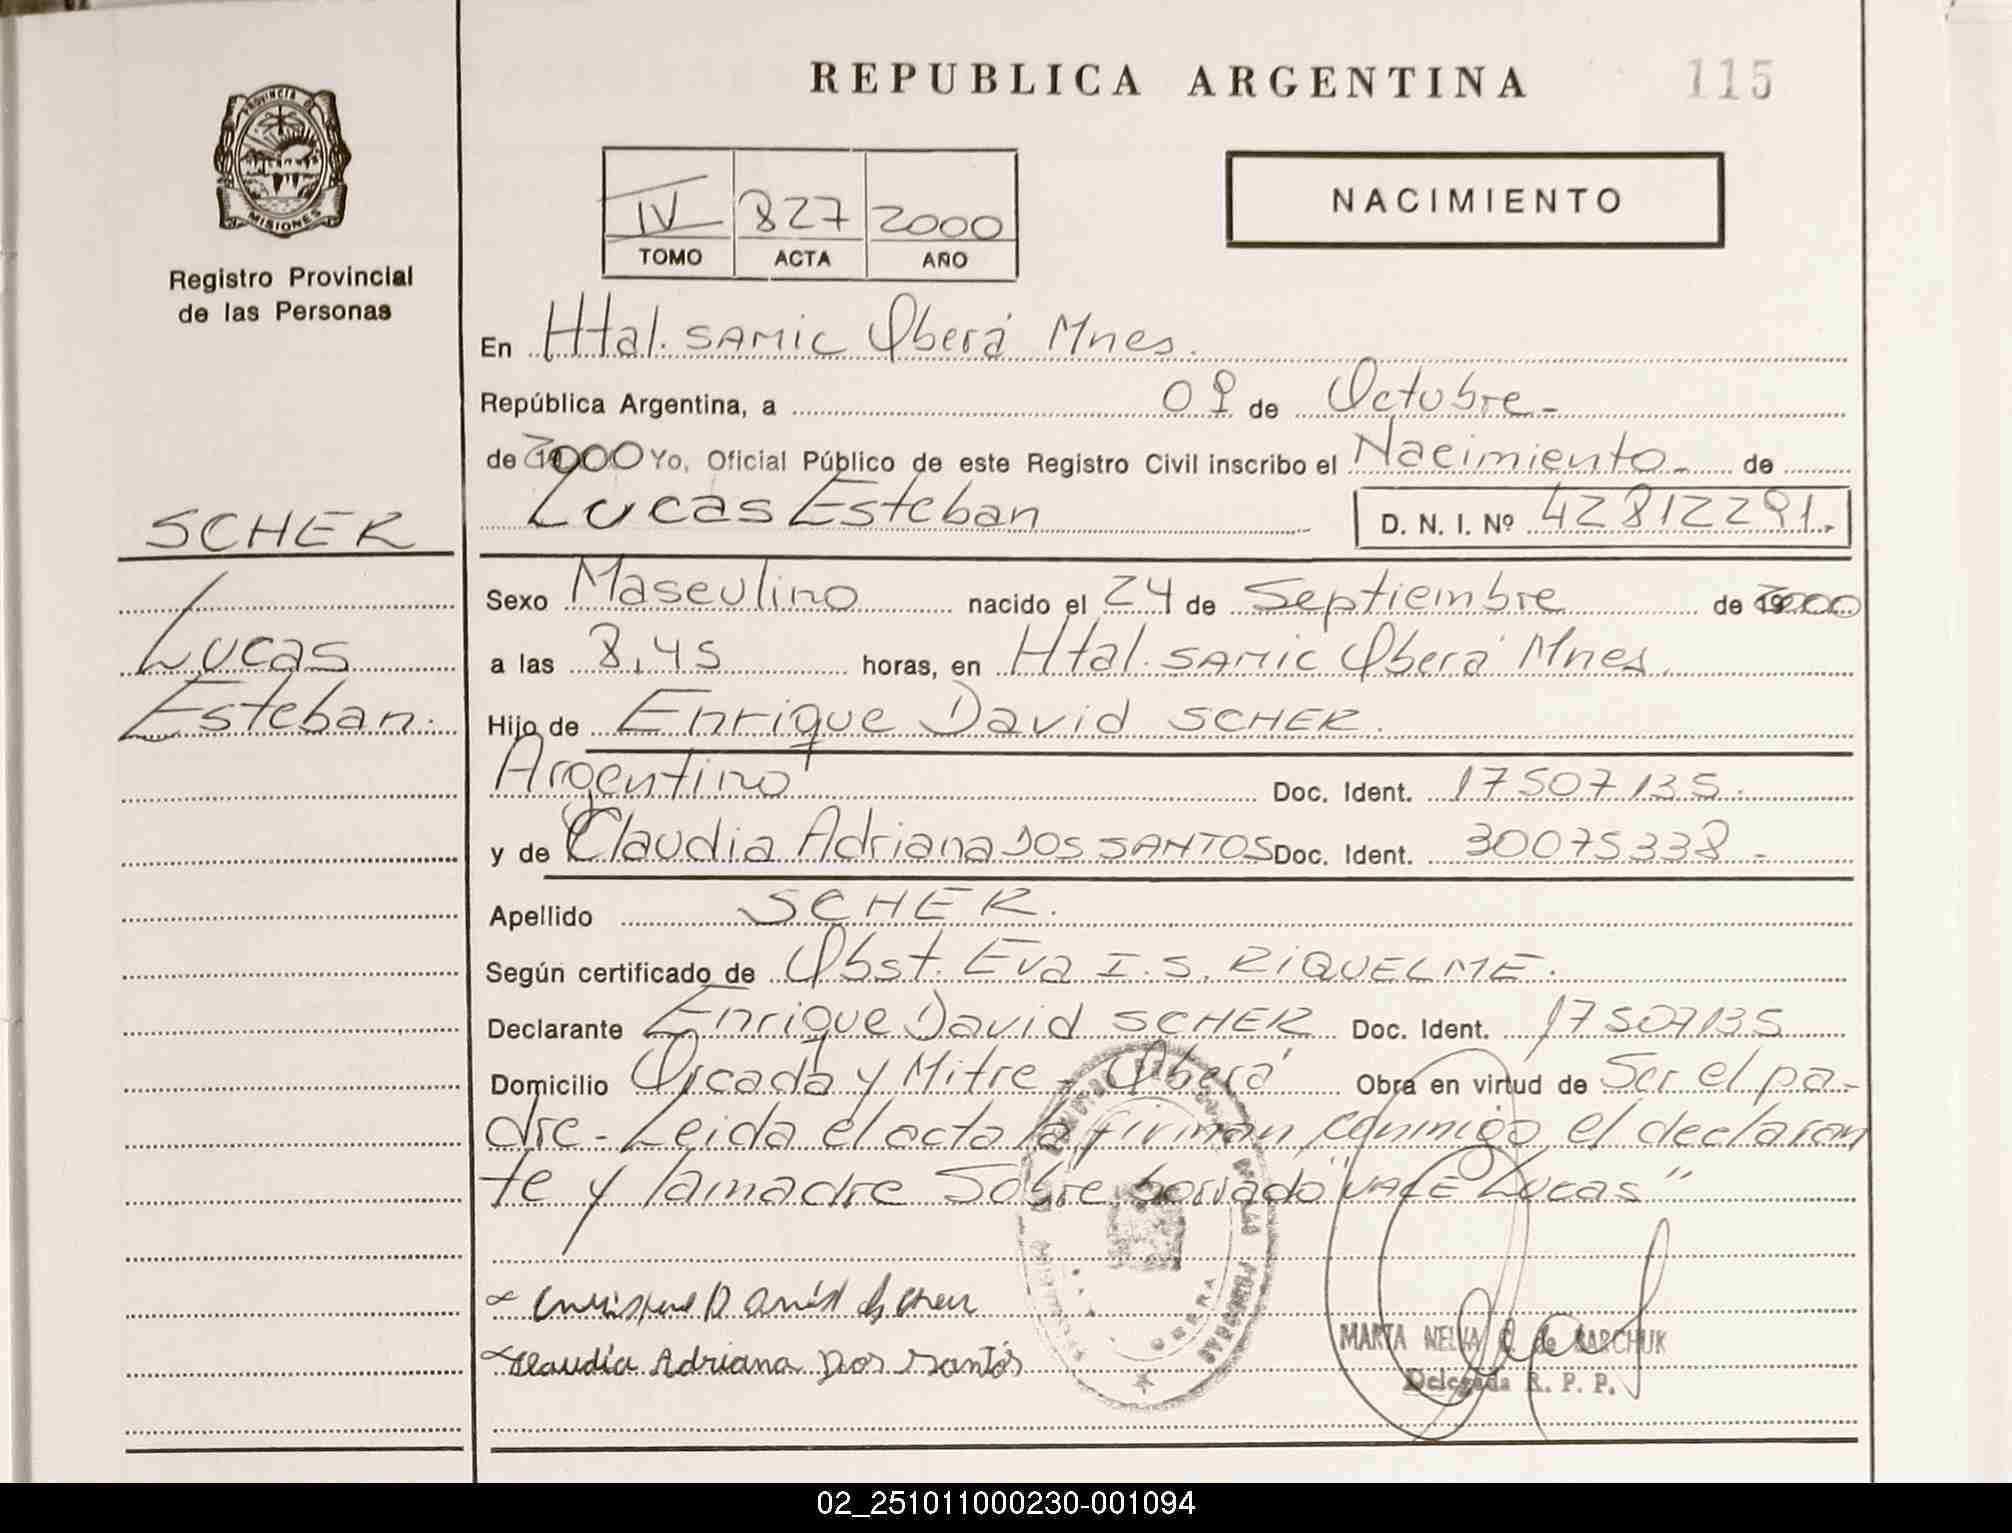 REPUBLICA ARGENTINA
115
PROVINCIA DE
MISIONES
Registro Provincial
de las Personas
IV 827 2000
TOMO ACTA AÑO
NACIMIENTO
En Htal. SAMIC Oberá Mnes.
República Argentina, a 09 de Octubre-
de 2000 Yo, Oficial Público de este Registro Civil inscribo el Nacimiento- de
Lucas Esteban D. N. I. Nº 42812291.-
SCHER
Lucas
Esteban.
Sexo Masculino nacido el 24 de Septiembre de 2000
a las 8,45 horas, en Htal. SAMIC Oberá Mnes.
Hijo de Enrique David SCHER.
Argentino Doc. Ident. 17507135.
y de Claudia Adriana DOS SANTOS Doc. Ident. 30075338-
Apellido SCHER.
Según certificado de Obst. Eva I.S. RIQUELME.
Declarante Enrique David SCHER Doc. Ident. 17507135
Domicilio y Mitre - Oberá Obra en virtud de Ser el pa-
dre- Leida el acta la firman conmigo el declaran
te y la madre Sobre borrado "VALE Lucas"
Enrique David Scher
Claudia Adriana Dos Santos
OBERA
MARTA NELVA de
Delegada R. P. P.
02_251011000230-001094